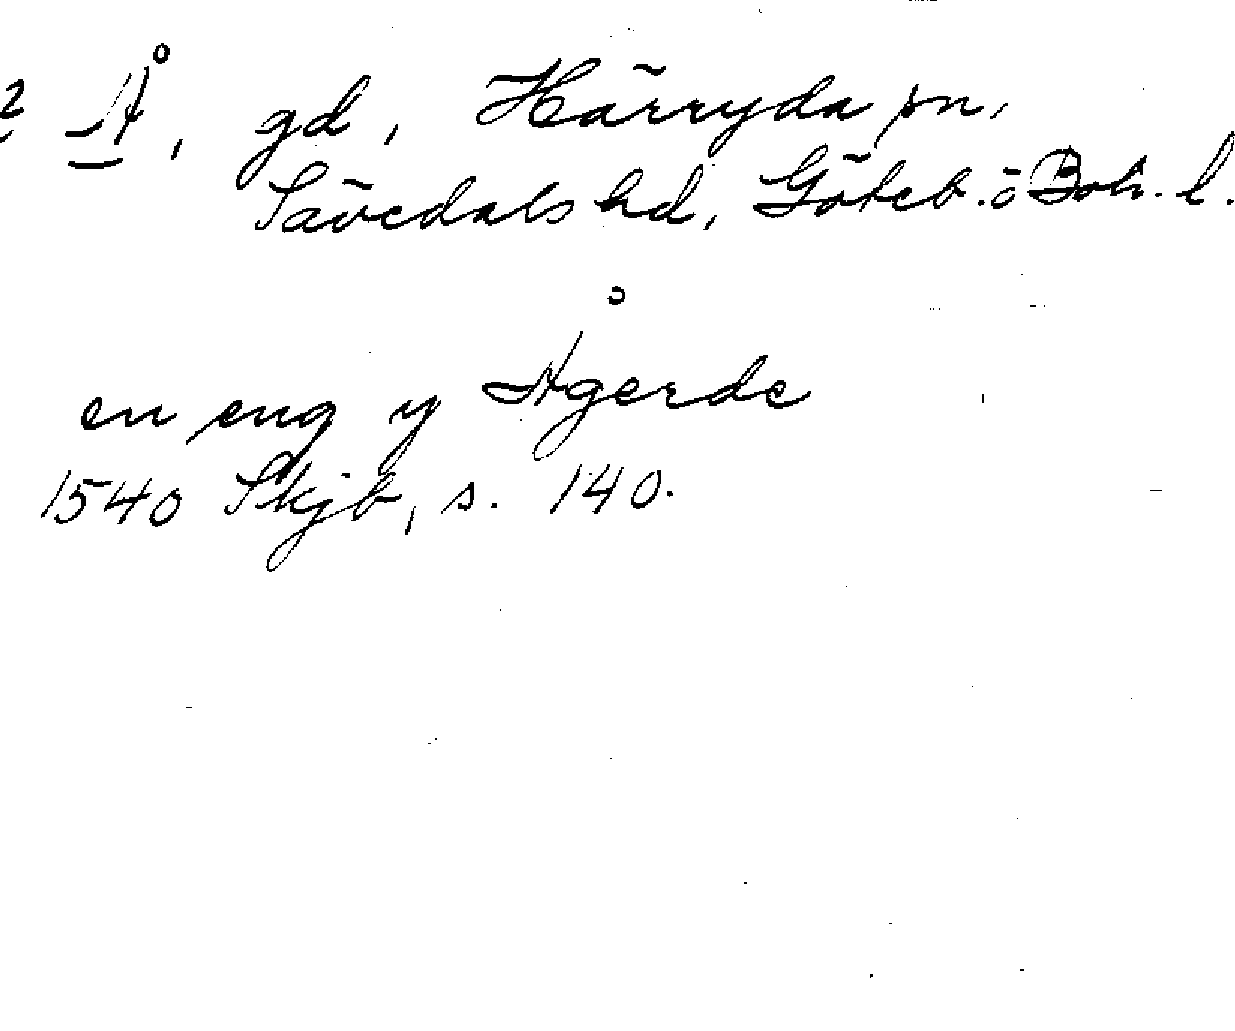 2 Å, gd, Härryda sn,
Sävedals hd, Göteb. o Boh. l.
en eng y Ågerde
1540 Skjb, s. 140.